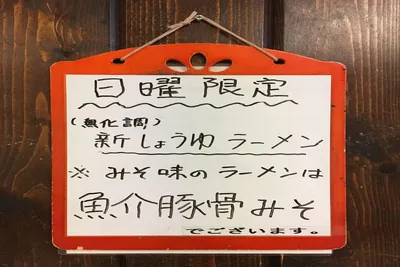 日曜限定
(無化調)
新しょうゆラーメン
※みそ味のラーメンは
魚介豚骨みそ
でございます。